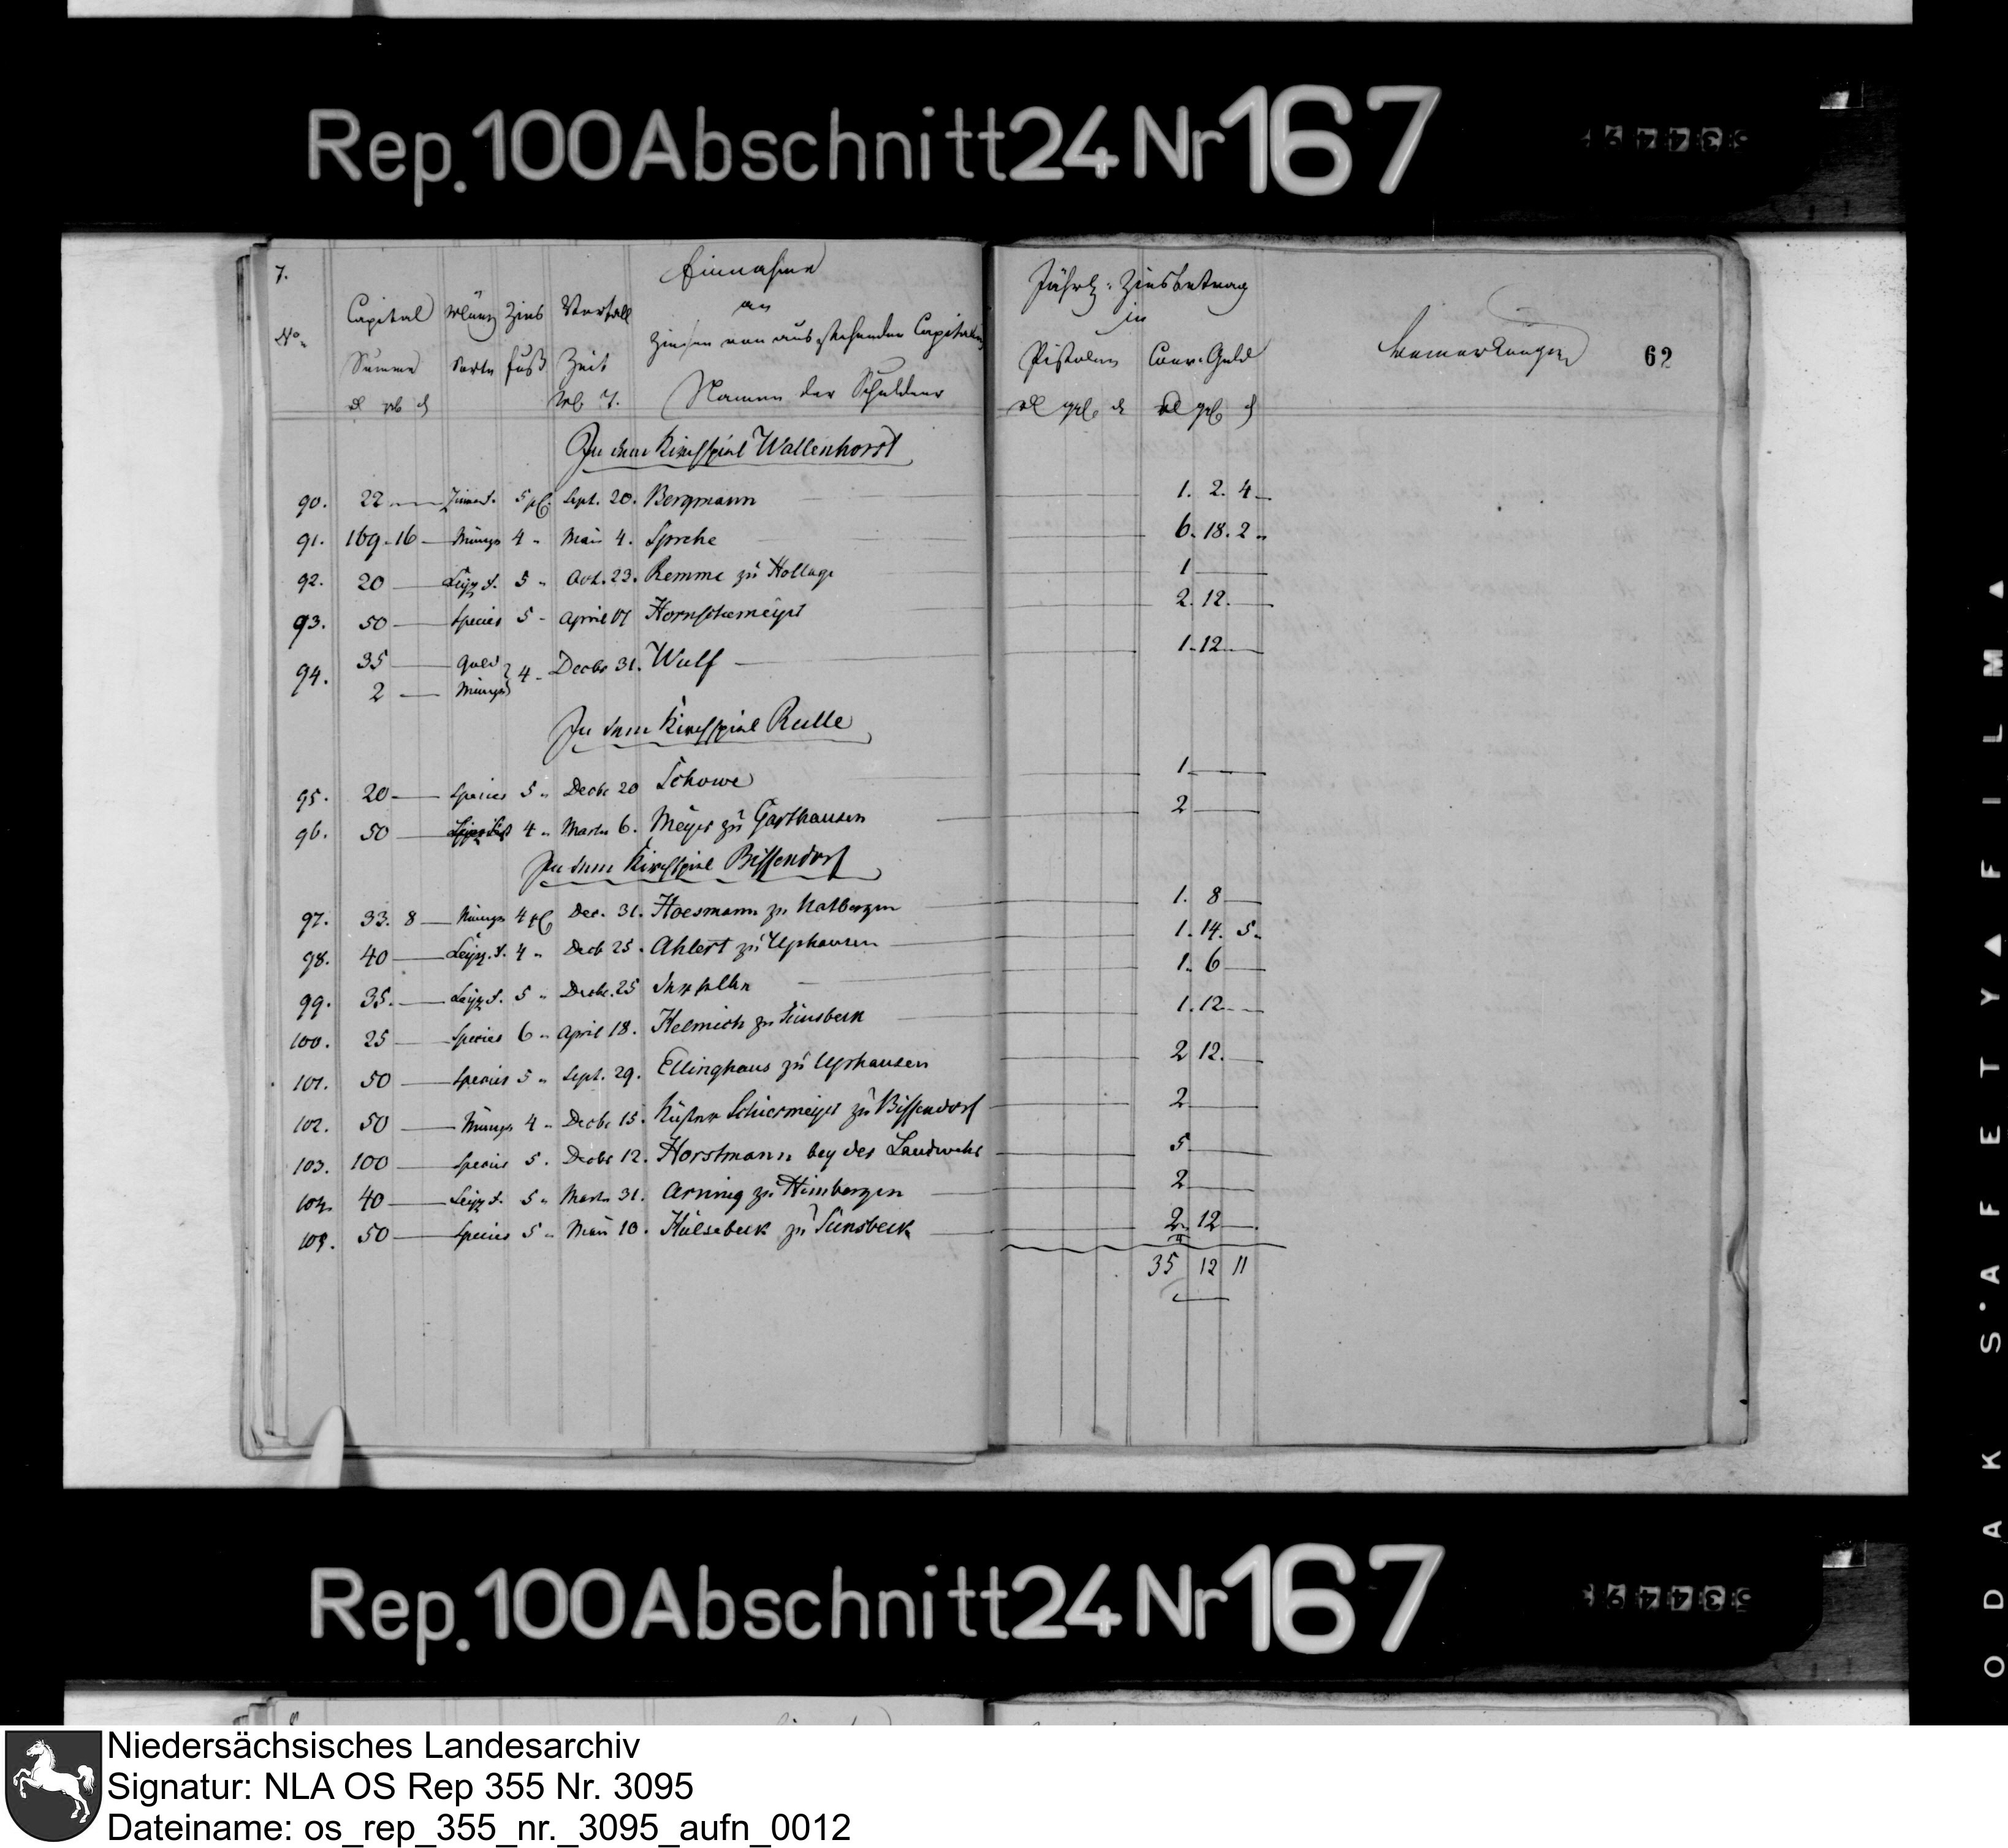 Rep. 100 Abschnitt 24 Nr 167
7.
Einnahme
an
Zinsen von ausstehenden Capitalien
No. Capital Summe Münz Sorte Zins fuß Verfall Zeit Namen der Schuldner
Jährl. Zinsbetrag
in
Pistolen Conv. Geld
Bemerkungen 62
In dem Kirchspiel Wallenhorst
90. 22 5 pC. Sept. 20. Bergmann 1. 2. 4
91. 169. 16 Münze 4 " Mai 4. Sprehe 6. 18. 2
92. 20 Leipz. 5 " Oct. 23. Remme zu Hollage 1
93. 50 Species 5 " April 17 2. 12.
94. 35 Gold 4 " Decbr 31. Wulf 1. 12
2 Münze
In dem Kirchspiel Rulle
95. 20 Species 5 " Decbr 20 Schowe 1
96. 50 4 " Martz 6. Meyer zu Garthausen 2
In dem Kirchspiel Bissendorf
97. 33. 8 Münze 4 pC Dec. 31. Hoesmann zu Natbergen 1. 8
98. 40 Leipz. 4 " Decb 25. Ahlert zu Uphausen 1. 14. 5
99. 35. Leipz. 5 " Decbr. 25 1. 6
100. 25 Species 6 " April 18. Helmich zu Sünsbeck 1. 12
101. 50 Species 5 " Sept. 29. Ellinghaus zu Uphausen 2 12.
102. 50 Münze 4 " Decbr 15. Küster Schiermeyer zu Bissendorf 2
103. 100 Species 5. Decbr 12. Horstmann bey der Landwehr 5
104. 40 Leipz. 5 " Martz 31. Arning zu Himbergen 2
105. 50 Species 5 " Mai 10. Hülsebeck zu Sünsbeck 2. 12
35 12 11
Rep. 100 Abschnitt 24 Nr 167
KODAK SAFETY FILM
Niedersächsisches Landesarchiv
Signatur: NLA OS Rep 355 Nr. 3095
Dateiname: os_rep_355_nr._3095_aufn_0012